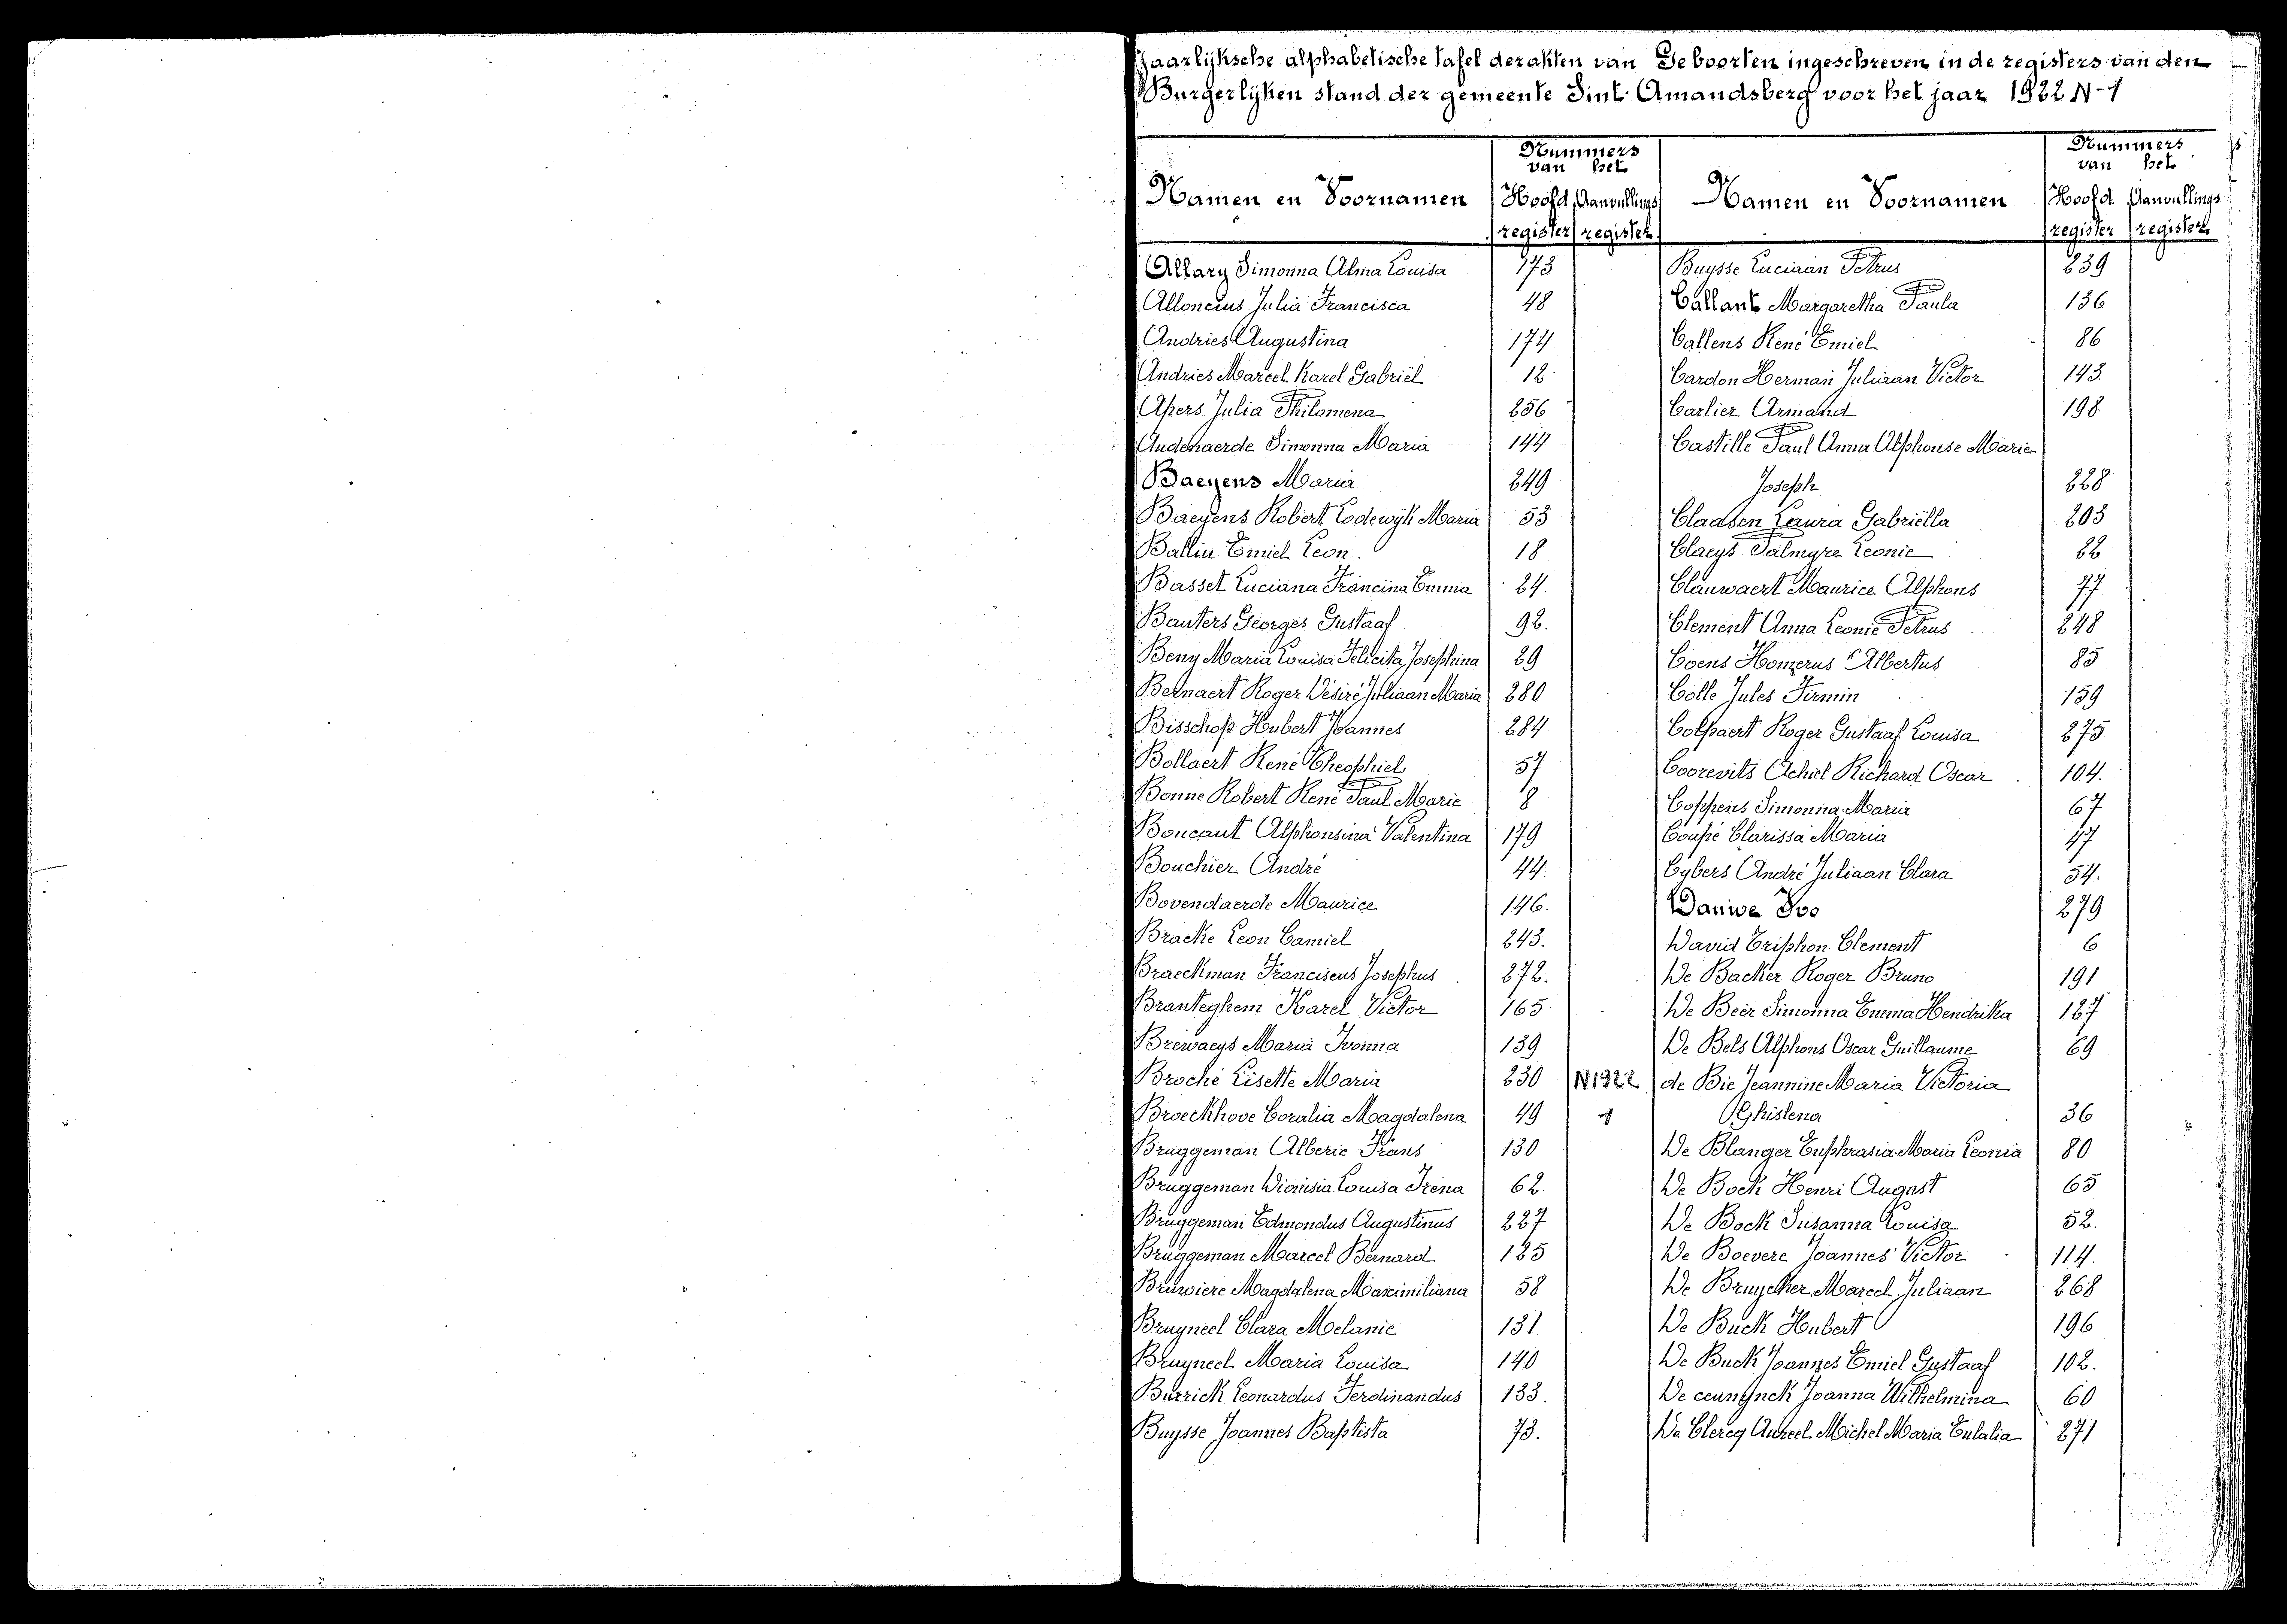 Jaarlyksche alphabetische tafel der akten van Geboorten ingeschreven in de registers van den
Burgerlyken stand der gemeente Sint Amandsberg voor het jaar 1922 N-1
Namen en Voornamen
Nummers van het
Hoofd register
Aanvullings register
Namen en Voornamen
Nummers van het
Hoofd register
Aanvullings register
Allary Simonna Alma Louisa 173
Alloncius Julia Francisca 48
Andries Augustina 174
Andries Marcel Karel Gabriël 12
Apers Julia Philomena 256
Audenaerde Simonna Maria 144
Baeyens Maria 249
Baeyens Robert Lodewyk Maria 53
Ballin Emiel Leon 18
Basset Luciana Francina Emma 24.
Bauters Georges Gustaaf 92.
Beny Maria Louisa Felicita Josephina 29
Bernaert Roger Désiré Juliaan Maria 280
Bisschop Hubert Joannes 284
Bollaert René Theophiel 57
Bonne Robert René Paul Marie 8
Boucaut Alphonsina Valentina 179
Bouchier André 44.
Bovendaerde Maurice 146.
Bracke Leon Camiel 243.
Braeckman Franciscus Josephus 272.
Branteghem Karel Victor 165
Brewaeys Maria Ivonna 139
Broché Lisette Maria 230 N1922
Broeckhove Coralia Magdalena 49 1
Bruggeman Alberic Frans 130
Bruggeman Dionisia Louisa Irena 62.
Bruggeman Edmondus Augustinus 227
Bruggeman Marcel Bernard 125
Bruwiere Magdalena Maximiliana 58
Bruyneel Clara Melanie 131
Bruyneel Maria Louisa 140
Burrick Leonardus Ferdinandus 133.
Buysse Joannes Baptista 73.
Buysse Luciaan Petrus 239
Callant Margaretha Paula 136
Callens René Emiel 86
Cardon Herman Juliaan Victor 143.
Carlier Armand 198.
Castille Paul Anna Alphonse Marie
Joseph 228
Claasen Laura Gabriëlla 203
Claeys Palmyre Leonie 22
Clauwaert Maurice Alphons 77
Clement Anna Leonie Petrus 248
Coens Homerus Albertus 85
Colle Jules Firmin 159
Colpaert Roger Gustaaf Louisa 275
Coorevits Achiel Richard Oscar 104.
Coppens Simonna Maria 67
Coupé Clarissa Maria 47
Cybers André Juliaan Clara 54.
Dauwe Ivo 279
David Eriphon Clement 6
De Backer Roger Bruno 191
De Beir Simonna Emma Hendrika 127
De Bels Alphons Oscar Guillaume 69
de Bie Jeannine Maria Victoria
Ghislena 36
De Blanger Euphrasia Maria Leonia 80
De Bock Henri August 65
De Bock Susanna Louisa 52.
De Boevere Joannes Victor 114.
De Bruycker Marcel Juliaan 268
De Buck Hubert 196
De Buck Joannes Emiel Gustaaf 102.
De ceuninck Joanna Wilhelmina 60
De Clercq Aureel Michel Maria Eulalia 271